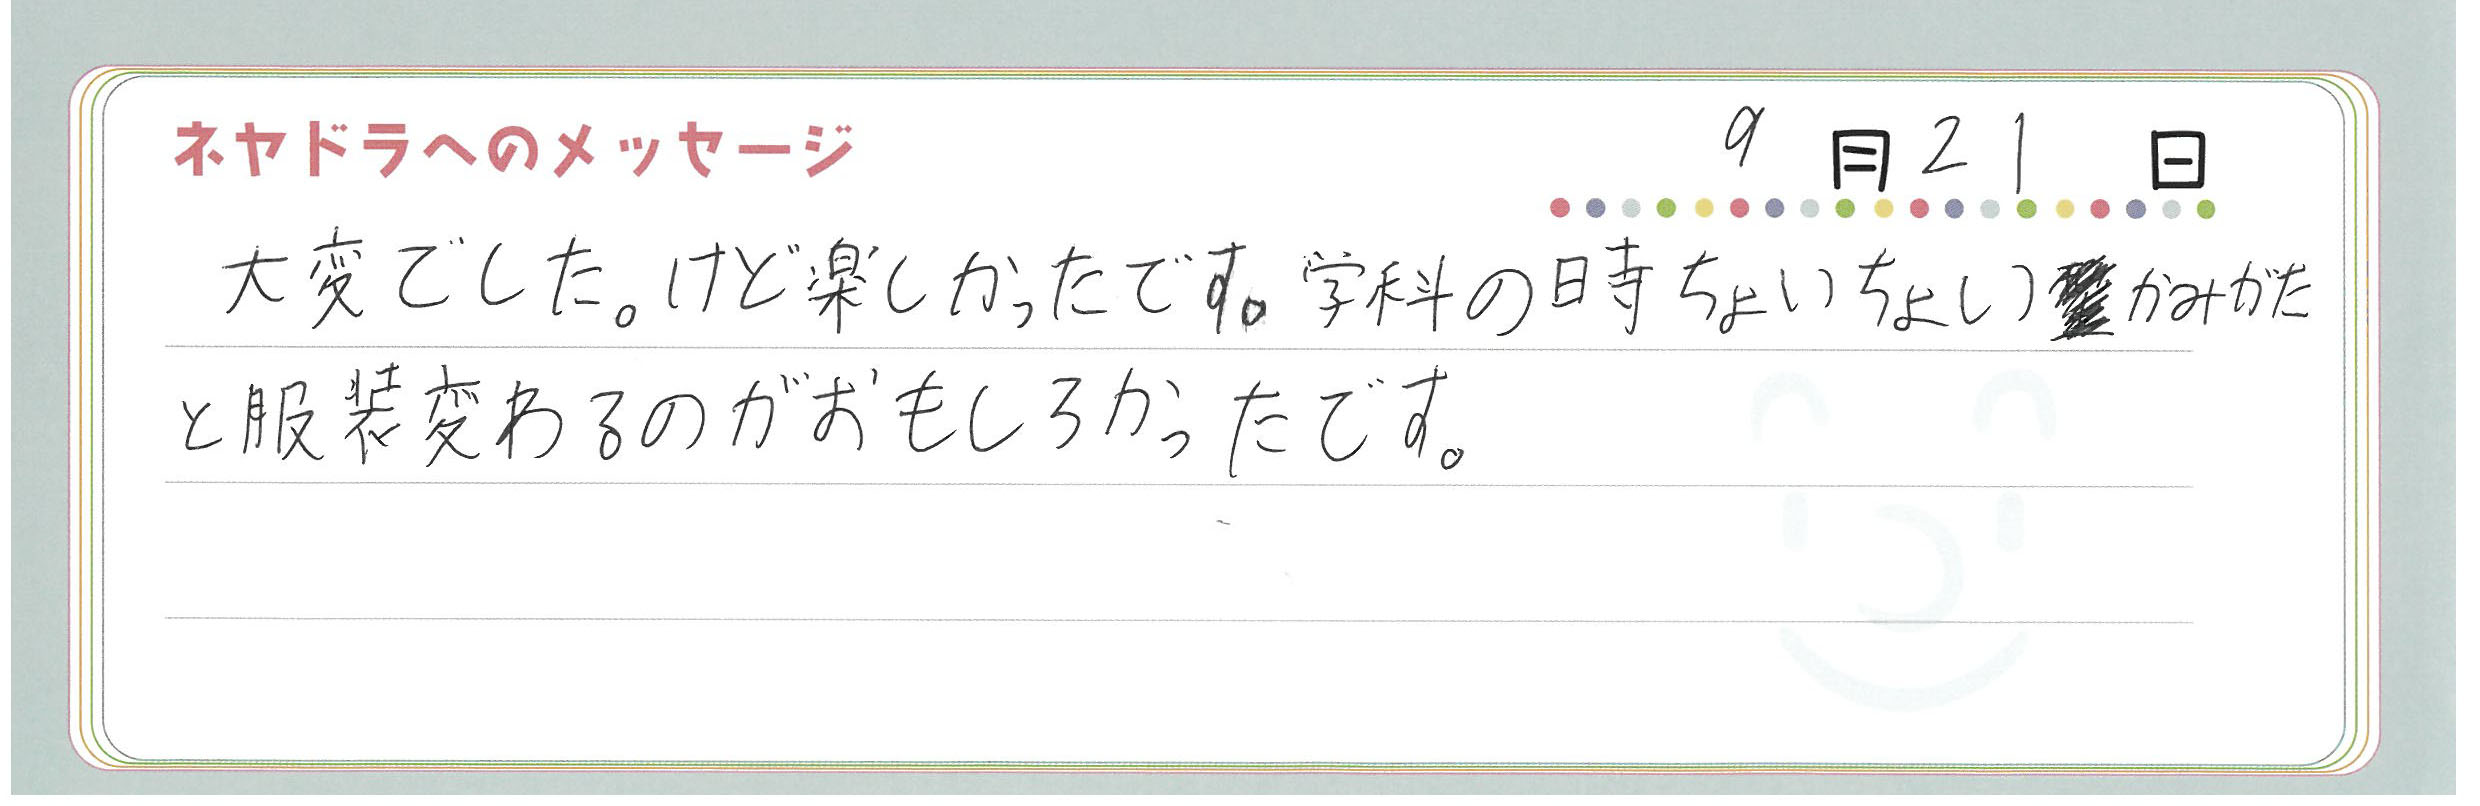 ネヤドラへのメッセージ
9月21日
大変でした。けど楽しかったです。学科の日時ちょいちょいかみがた
と服装変わるのがおもしろかったです。